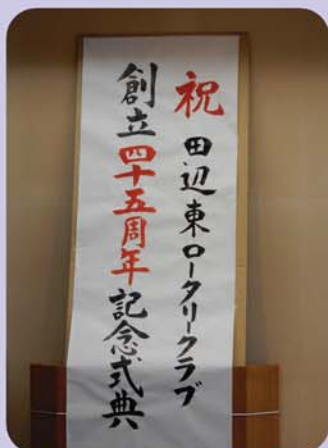 祝 田辺東ロータリークラブ
創立四十五周年記念式典